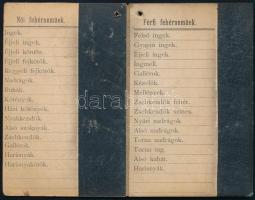 Női fehérneműek.
Ingek.
Éjjeli ingek.
Éjjeli köntös.
Éjjeli fejkötők.
Reggeli fejkötők.
Nadrágok.
Ruhák.
Kötények.
Házi kötények.
Nyakkendők.
Alsó szoknyák.
Zsebkendők.
Gallérok.
Harisnyák.
Harisnyakötők.
Férfi fehérneműek.
Felső ingek.
Gyapju ingek.
Éjjeli ingek.
Ingmell.
Gallérok.
Kézelők.
Mellények.
Zsebkendők fehér.
Zsebkendők színes.
Nyári nadrágok.
Alsó nadrágok.
Torna nadrágok.
Torna ing.
Alsó kabát.
Harisnyák.
darabanth